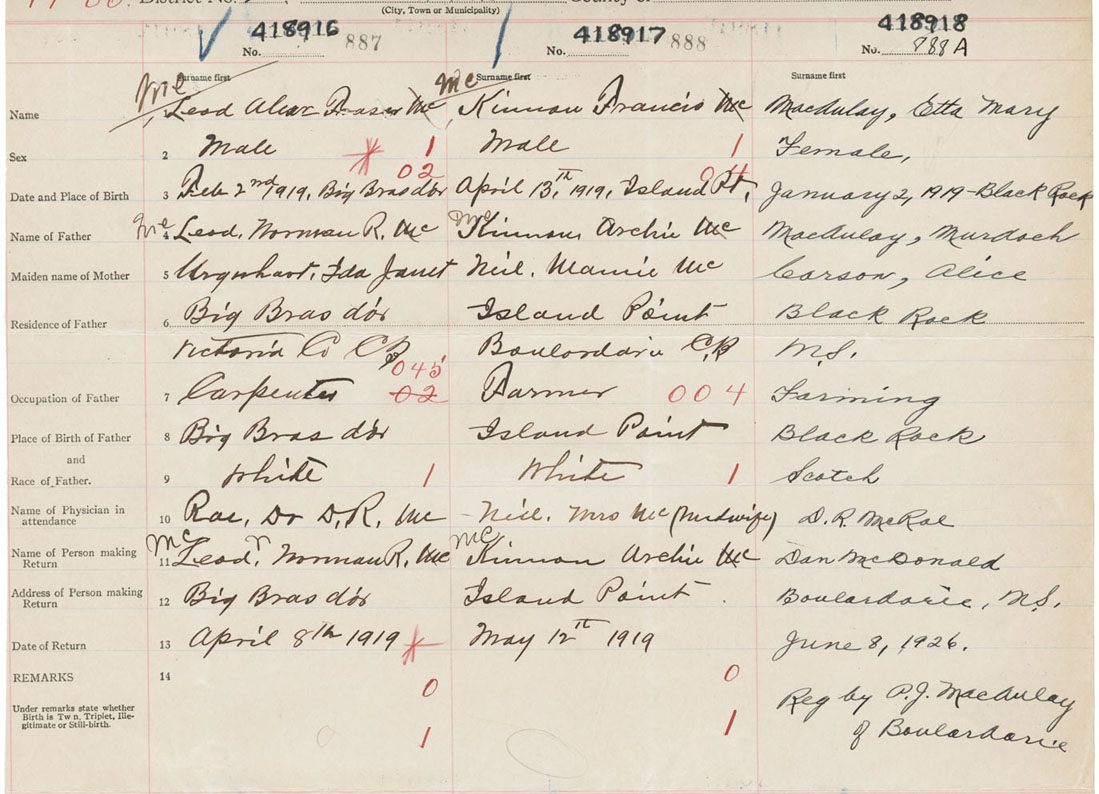 (City, Town or Municipality)
418916 418917 418918
No. 887 No. 888 No. 888 A
Surname first Surname first Surname first
Mc Mc
Name Leod Alex Fraser Mc Kinnon Francis Mc MacAulay, Etta Mary
Sex 2 Male 1 Male 1 Female,
02 04
Date and Place of Birth 3 Feb 2nd 1919, Big Bras dór April 13,th 1919, Island Pt, January 2, 1919-Black Rock
Mc Mc
Name of Father 4 Leod, Norman R. Mc Kinnon, Archie Mc MacAulay, Murdoch
Maiden name of Mother 5 Urquhart, Ida Janet Neil, Mamie Mc Carson, Alice
Residence of Father 6 Big Bras dór Island Point Black Rock
Victoria Co CB Boulardarie C,B N.S.
045
Occupation of Father 7 Carpenter 02 Farmer 004 Farming
Place of Birth of Father 8 Big Bras dór Island Point Black Rock
and
Race of Father. 9 White 1 White 1 Scotch
Name of Physician in
attendance 10 Rae, Dr D,R, Mc Neil, Mrs Mc (Midwife) D. R. McRae
Mc Mc
Name of Person making
Return 11 Leod, Norman R, Mc Kinnon Archie Mc Dan McDonald
Address of Person making
Return 12 Big Bras dór Island Point. Boulardarie, N.S.
Date of Return 13 April 8th 1919 May 12th 1919 June 8, 1926.
REMARKS 14
0 0
Under remarks state whether
Birth is Twin, Triplet, Ille-
gitimate or Still-birth.
1 1
Reg by P. J. MacAulay
of Boulardarie